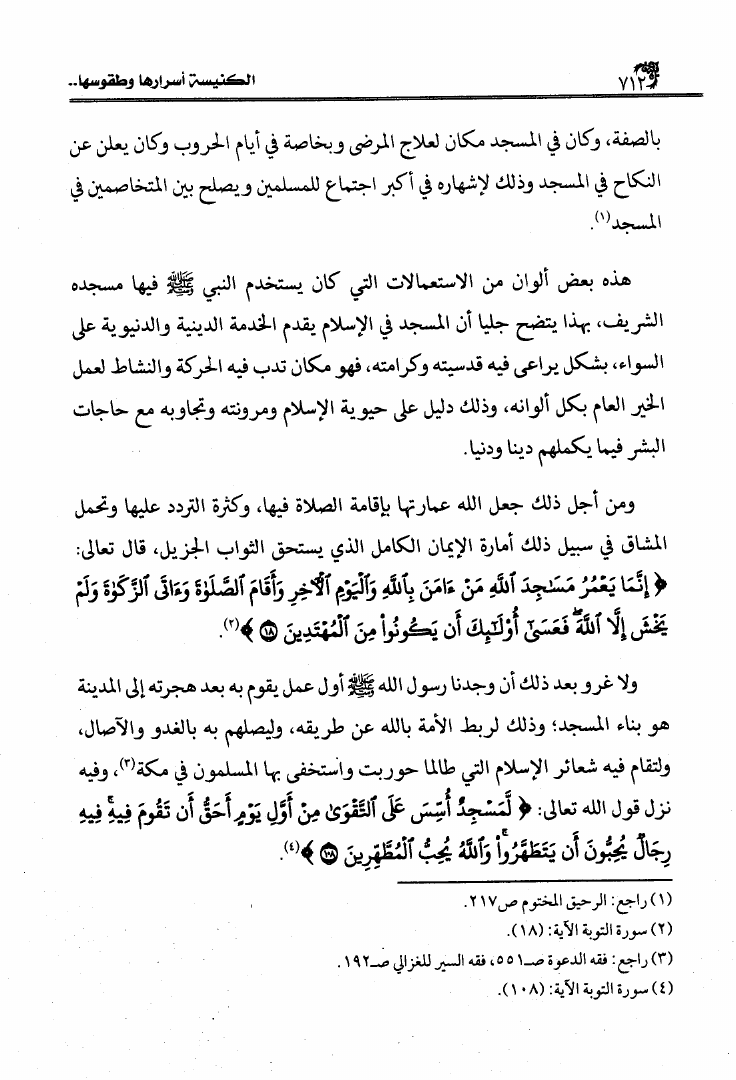 ٧١٢
الكنيسة أسرارها وطقوسها..
بالصفة، وكان في المسجد مكان لعلاج المرضى وبخاصة في أيام الحروب وكان يعلن عن
النكاح في المسجد وذلك لإشهاره في أكبر اجتماع للمسلمين ويصلح بين المتخاصمين في
المسجد(١).
هذه بعض ألوان من الاستعمالات التي كان يستخدم النبي ﷺ فيها مسجده
الشريف، بهذا يتضح جليا أن المسجد في الإسلام يقدم الخدمة الدينية والدنيوية على
السواء، بشكل يراعى فيه قدسيته وكرامته، فهو مكان تدب فيه الحركة والنشاط لعمل
الخير العام بكل ألوانه، وذلك دليل على حيوية الإسلام ومرونته وتجاوبه مع حاجات
البشر فيما يكملهم دينا ودنيا.
ومن أجل ذلك جعل الله عمارتها بإقامة الصلاة فيها، وكثرة التردد عليها وتحمل
المشاق في سبيل ذلك أمارة الإيمان الكامل الذي يستحق الثواب الجزيل، قال تعالى:
﴿ إِنَّمَا يَعْمُرُ مَسَٰجِدَ ٱللَّهِ مَنْ ءَامَنَ بِٱللَّهِ وَٱلْيَوْمِ ٱلْأٓخِرِ وَأَقَامَ ٱلصَّلَوٰةَ وَءَاتَى ٱلزَّكَوٰةَ وَلَمْ
يَخْشَ إِلَّا ٱللَّهَ ۖ فَعَسَىٰٓ أُو۟لَٰٓئِكَ أَن يَكُونُوا۟ مِنَ ٱلْمُهْتَدِينَ ١٨ ﴾(٢).
ولا غرو بعد ذلك أن وجدنا رسول الله ﷺ أول عمل يقوم به بعد هجرته إلى المدينة
هو بناء المسجد؛ وذلك لربط الأمة بالله عن طريقه، وليصلهم به بالغدو والآصال،
ولتقام فيه شعائر الإسلام التي طالما حوربت واستخفى بها المسلمون في مكة(٣)، وفيه
نزل قول الله تعالى: ﴿ لَّمَسْجِدٌ أُسِّسَ عَلَى ٱلتَّقْوَىٰ مِنْ أَوَّلِ يَوْمٍ أَحَقُّ أَن تَقُومَ فِيهِ ۚ فِيهِ
رِجَالٌ يُحِبُّونَ أَن يَتَطَهَّرُوا۟ ۚ وَٱللَّهُ يُحِبُّ ٱلْمُطَّهِّرِينَ ١٠٨ ﴾(٤).
(١) راجع: الرحيق المختوم ص٢١٧.
(٢) سورة التوبة الآية: (١٨).
(٣) راجع: فقه الدعوة صـ٥٥١، فقه السير للغزالي صـ١٩٢.
(٤) سورة التوبة الآية: (١٠٨).